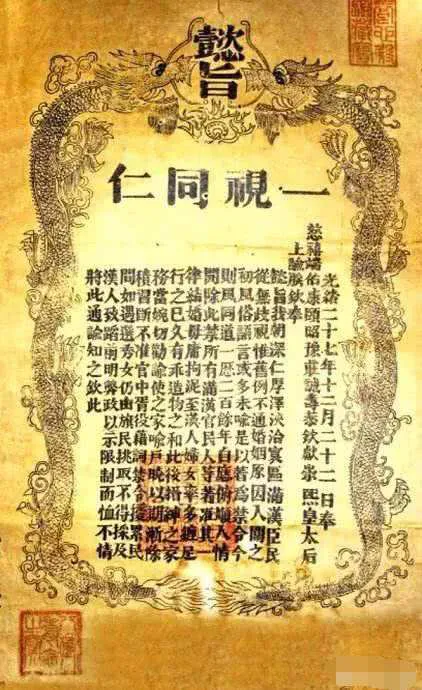 懿旨
一視同仁
光緒二十七年十二月二十二日奉
慈禧端佑康頤昭豫莊誠壽恭欽獻崇熙皇太后
上諭朕欽奉
懿旨我朝深仁厚澤浹洽寰區滿漢臣民
從無歧視惟舊例不通婚姻原因入關之
初風俗語言或多未喻是以著為禁令今
則風同道一歷二百餘年自應俯順人情
開除此禁所有滿漢官民人等著准其一
律結婚毋庸拘泥至漢人婦女率多纏足
行之已久有乖造物之和此後搢紳之家
務當婉切勸諭使之家喻戶曉以期漸除
積習斷不准官中胥役藉詞禁令擾累民
間如遇選秀女仍由旗民挑取不得採及
漢人致蹈前明弊政以示限制而恤不情
將此通諭知之欽此